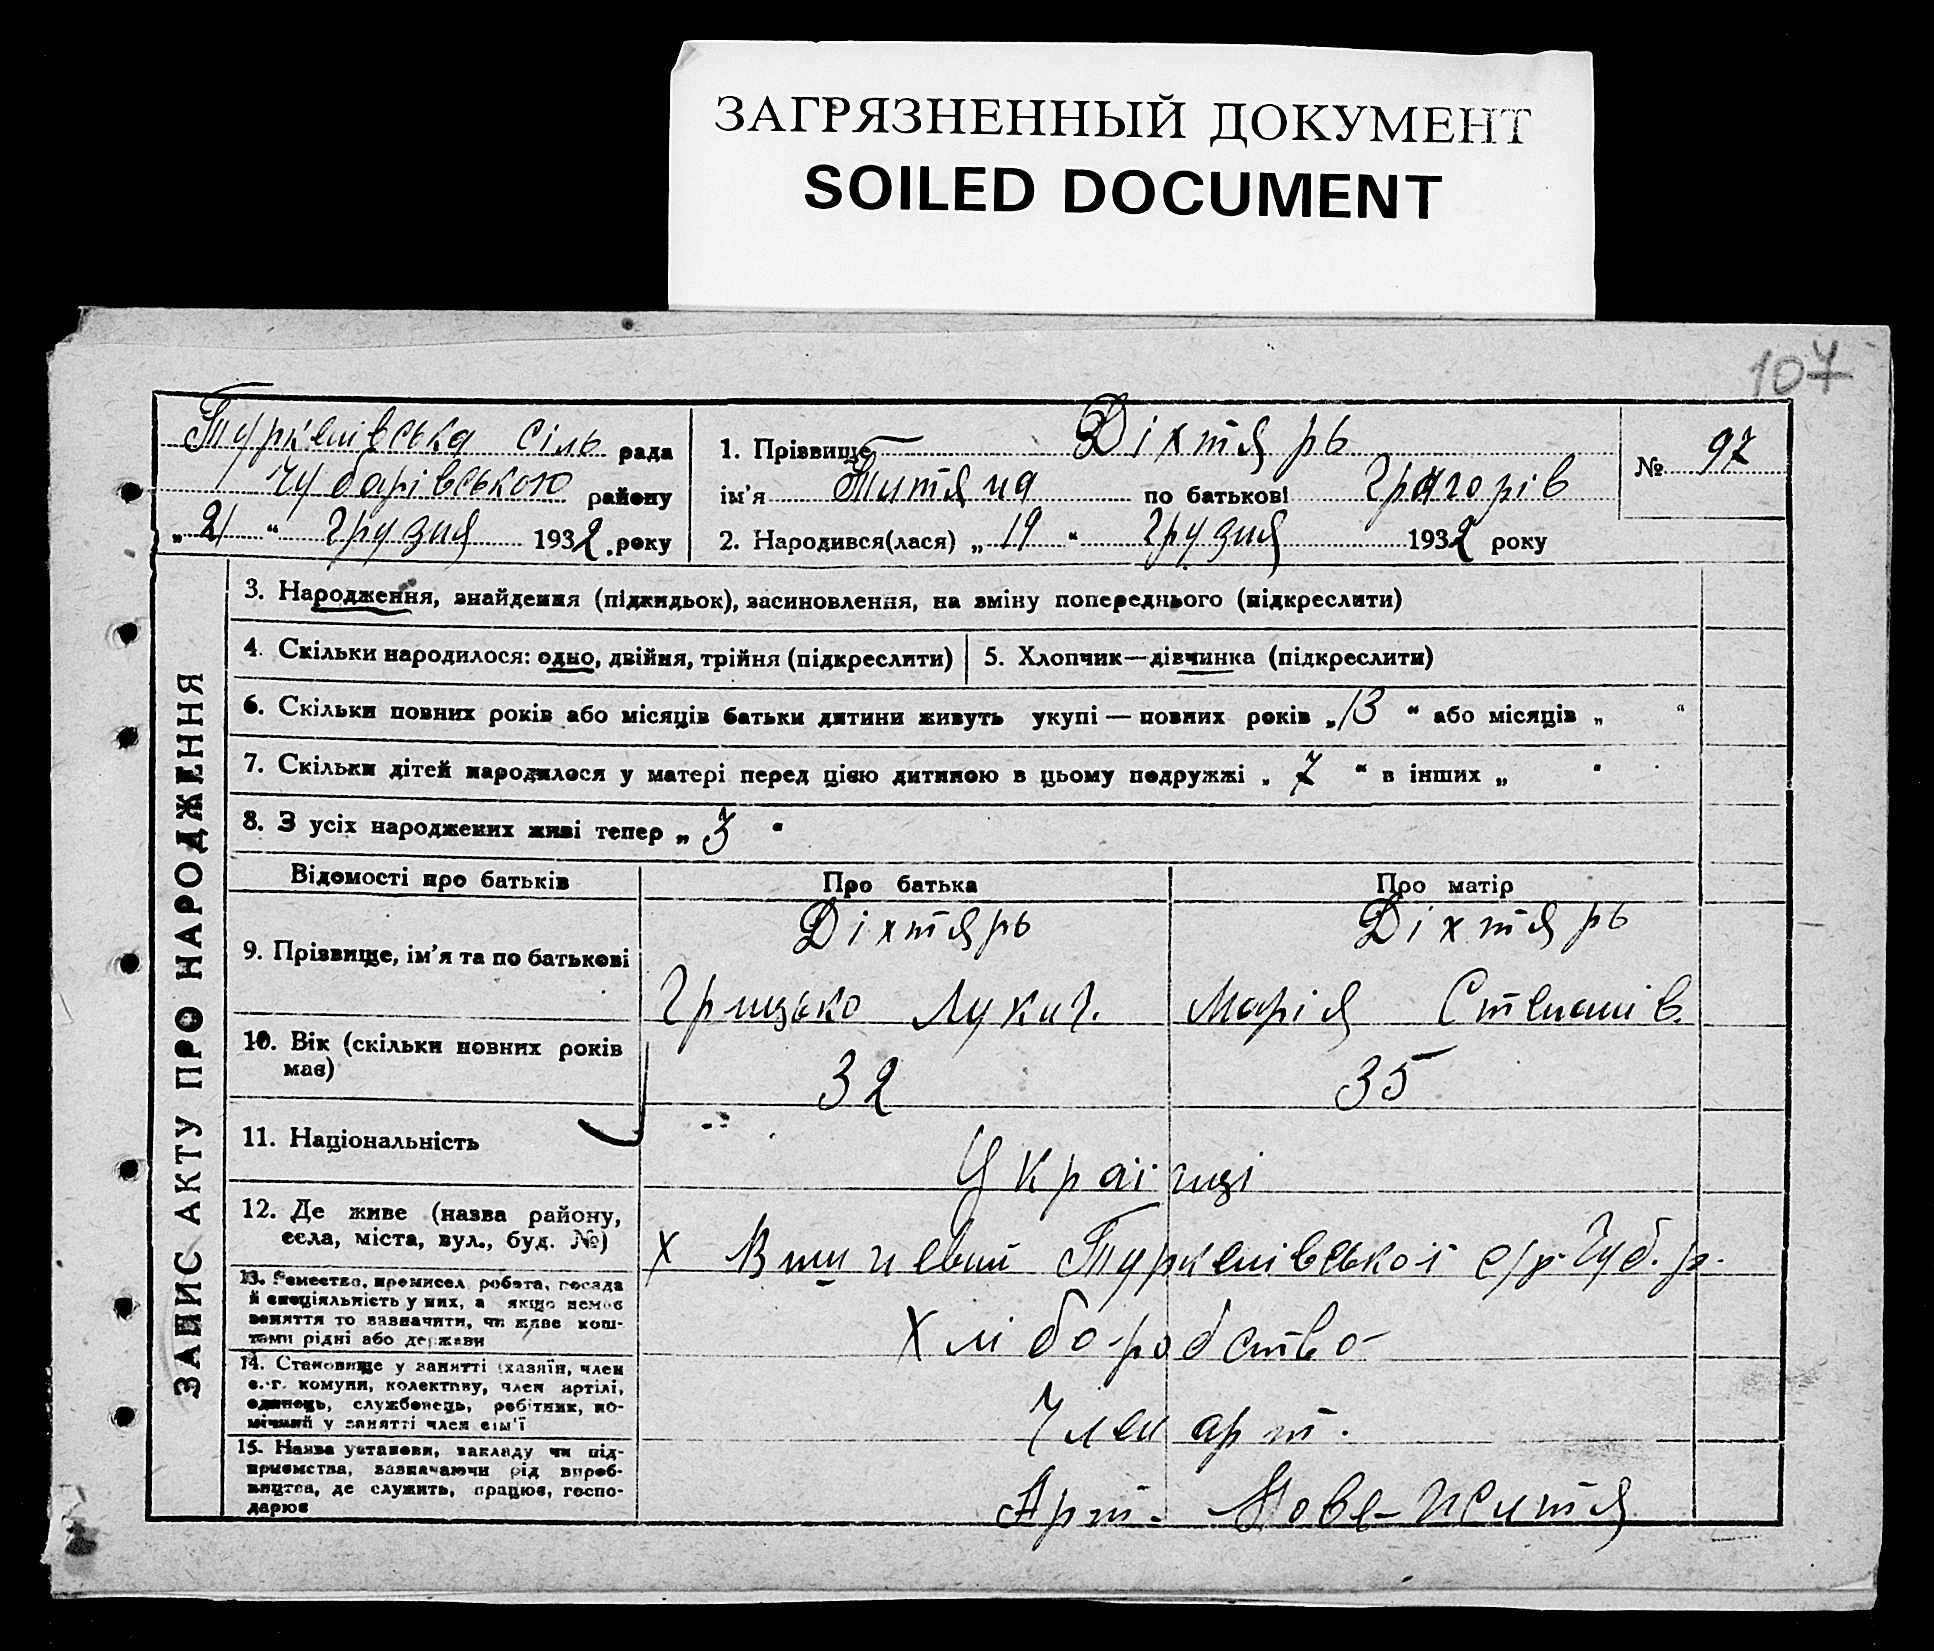 ЗАГРЯЗНЕННЫЙ ДОКУМЕНТ
SOILED DOCUMENT
107
Туркенівська сіль рада
Чубарівського району
„21“ грудня 1932 року
1. Прізвище Діхтярь
ім'я Титяна по батькові Григорів
2. Народився(лася) „19“ грудня 1932 року
№ 97
ЗАПИС АКТУ ПРО НАРОДЖЕННЯ
3. Народження, знайдення (підкидьок), засиновлення, на зміну попереднього (підкреслити)
4. Скільки народилося: одно, двійня, трійня (підкреслити)
5. Хлопчик—дівчинка (підкреслити)
6. Скільки повних років або місяців батьки дитини живуть укупі — повних років „13“ або місяців „ “
7. Скільки дітей народилося у матері перед цією дитиною в цьому подружжі „7“ в інших „ “
8. З усіх народжених живі тепер „3“
Відомості про батьків Про батька Про матір
9. Прізвище, ім'я та по батькові
Діхтярь Діхтярь
Грицько Лукич. Марія Степанів.
10. Вік (скільки повних років
має)
32 35
11. Національність
Українці
12. Де живе (назва району,
села, міста, вул., буд. №)
х Вишневий Туркенівської с/р Чуб. р.
13. Ремество, промисел, робота, посада
й спеціяльність у них, а якщо немає
заняття то зазначити, чи живе кош-
тами рідні або держави
Хліборобство
14. Становище у занятті (хазяїн, член
с.-г. комуни, колективу, член артілі,
одинець, службовець, робітник, по-
мічний у занятті член сім'ї
Член арт.
15. Назва установи, закладу чи під-
приємства, зазначаючи рід вироб-
ництва, де служить, працює, госпо-
дарює
Арт. Нове-Життя